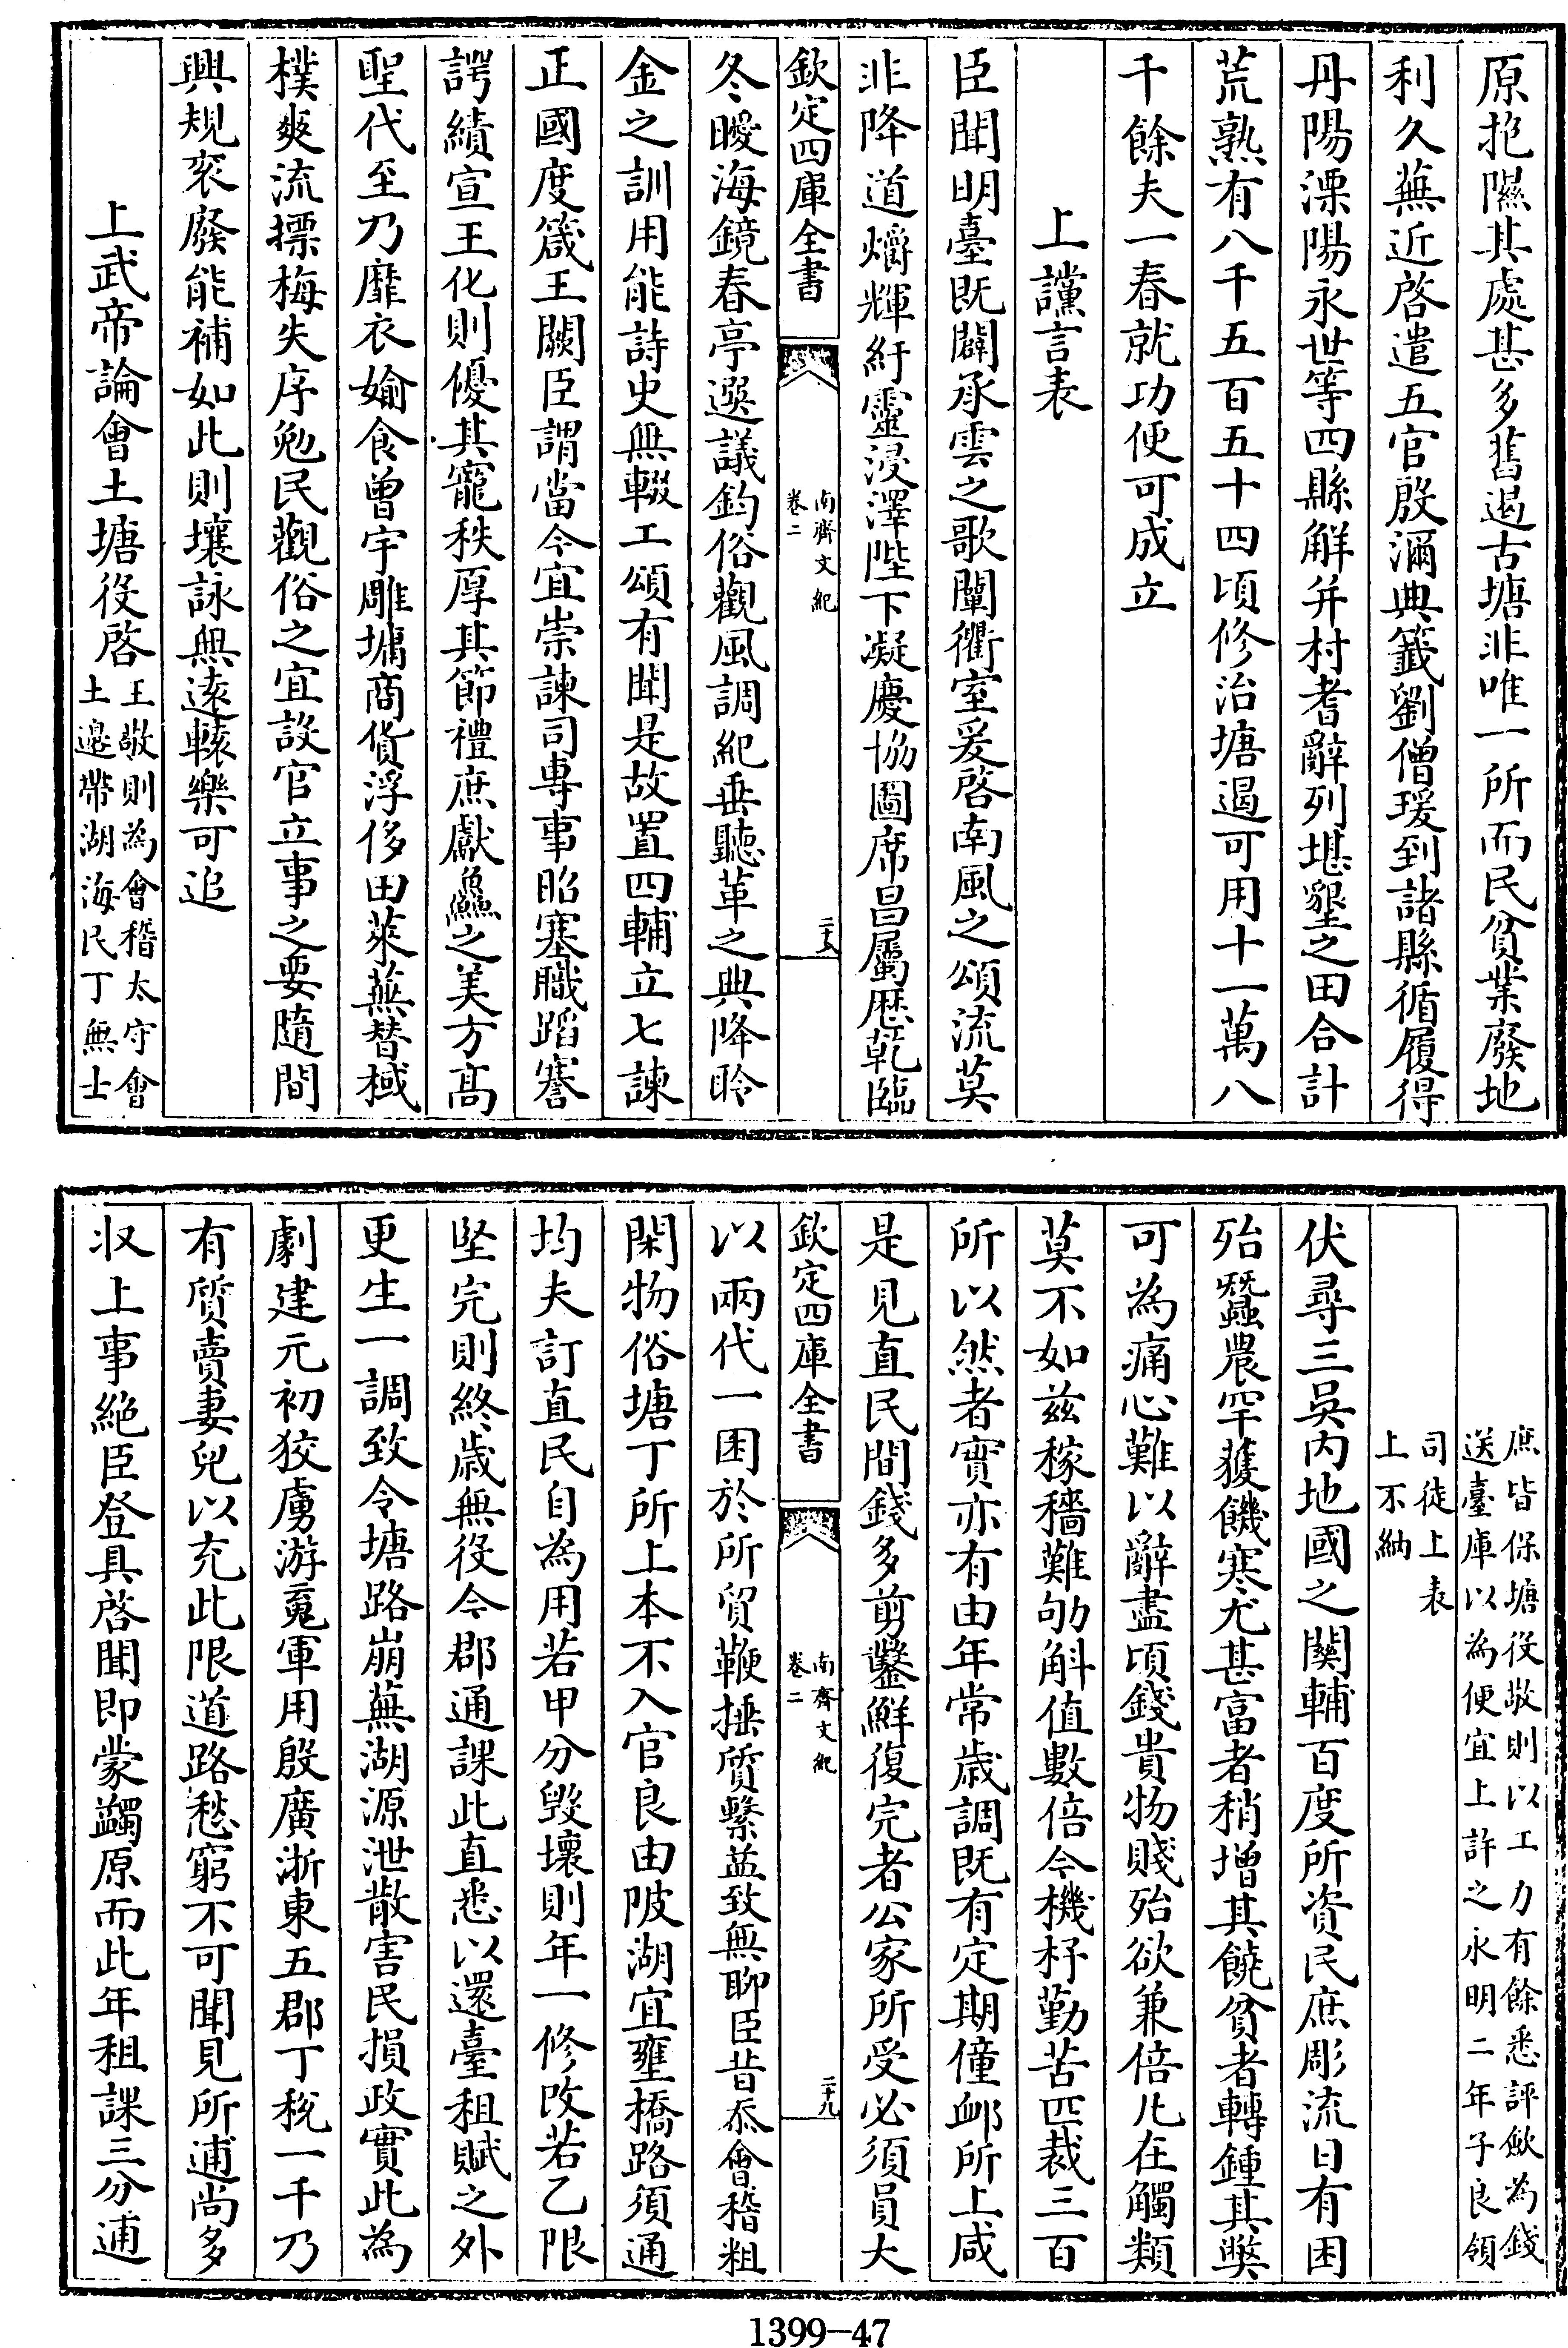 原抱隰其處甚多舊遏古塘非唯一所而民貧業廢地
利久蕪近啓遣五官殷濔典籤劉僧瑗到諸縣循履得
丹陽溧陽永世等四縣解并村耆辭列堪墾之田合計
荒熟有八千五百五十四頃修治塘遏可用十一萬八
千餘夫一春就功便可成立
上讜言表
臣聞明臺既闢承雲之歌闡衢室爰啓南風之頌流莫
非降道爝輝紆靈浸澤陛下凝慶協圖席昌屬歷乾臨
欽定四庫全書
南齊文紀
卷二
二十八
冬曖海鏡春亭選議鈞俗觀風調紀垂聽革之典降聆
金之訓用能詩史無輟工頌有聞是故置四輔立七諫
正國度箴王闕臣謂當今宜崇諫司專事昭塞職蹈謇
諤績宣王化則優其寵秩厚其節禮庶獻鱻之美方高
聖代至乃靡衣媮食曾宇雕墉商貨浮侈田萊蕪替棫
樸爽流摽梅失序勉民觀俗之宜設官立事之要隨間
興規衮廢能補如此則壤詠無遠轅樂可追
上武帝論會土塘役啓
王敬則為會稽太守會
土邊帶湖海民丁無士
庶皆保塘役敬則以工力有餘悉評歛為錢
送臺庫以為便宜上許之永明二年子良領
司徒上表
上不納
伏尋三吳內地國之關輔百度所資民庶彫流日有困
殆蠶農罕獲饑寒尤甚富者稍增其饒貧者轉鍾其獘
可為痛心難以辭盡頃錢貴物賤殆欲兼倍凡在觸類
莫不如兹稼穡難劬斛值數倍今機杼勤苦匹裁三百
所以然者實亦有由年常歲調既有定期僮䘏所上咸
是見直民間錢多剪鑿鮮復完者公家所受必須員大
欽定四庫全書
南齊文紀
卷二
二十九
以兩代一困於所貿鞭捶質繫益致無聊臣昔忝會稽粗
閑物俗塘丁所上本不入官良由陂湖宜壅橋路須通
均夫訂直民自為用若甲分毀壞則年一修改若乙限
堅完則終歲無役今郡通課此直悉以還臺租賦之外
更生一調致令塘路崩蕪湖源泄散害民損政實此為
劇建元初狡虜游䰟軍用殷廣浙東五郡丁稅一千乃
有質賣妻兒以充此限道路愁窮不可聞見所逋尚多
収上事絶臣登具啓聞即蒙蠲原而此年租課三分逋
1399-47